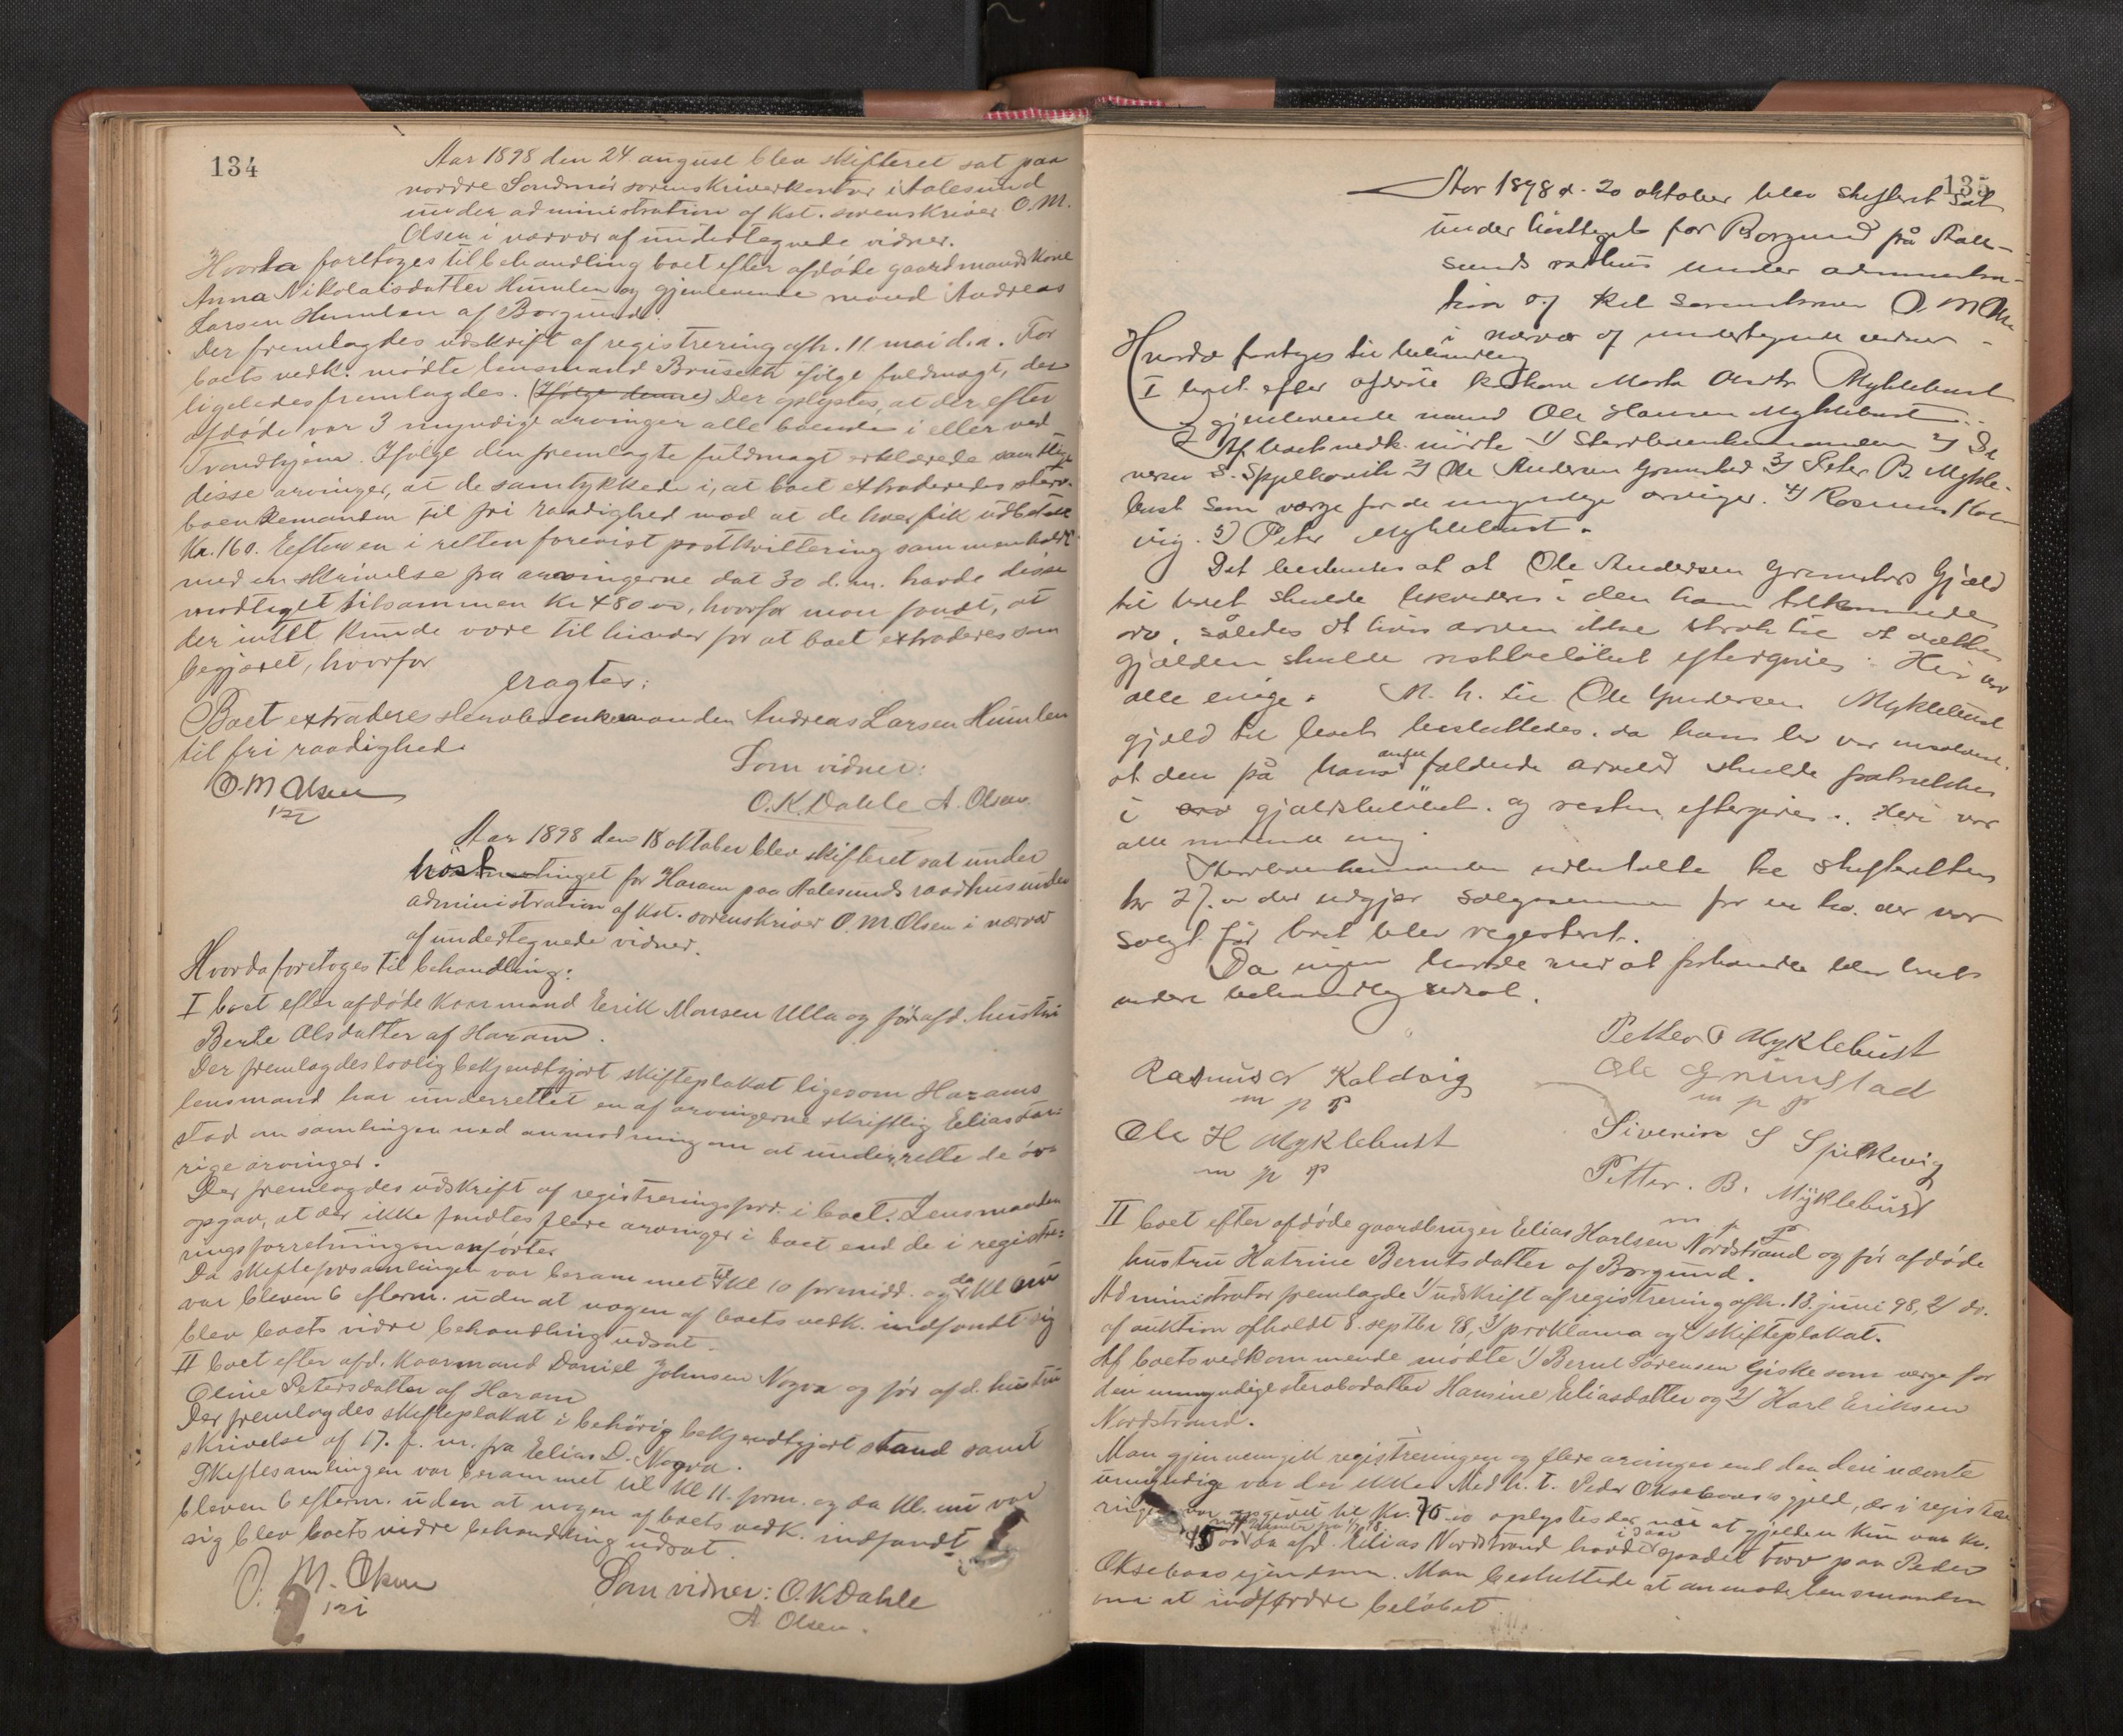 134
Aar 1898 den 24 august blev skifteret sat paa
nordre Søndmør sorenskriverkontor i Aalesund
under administration af Kst. sorenskriver O.M.
Olsen i nærvær af undertegnede vidner.
Hvorda foretoges til behandling boet efter afdøde gaardmandskone
Anna Nikolaisdatter Humlen og gjenlevende mand Andreas
Larsen Humlen af Borgund.
Der fremlagdes udskrift af registrering afh. 11 mai d.a. For
boets vedk. mødte lensmand Bruseth ifølge fuldmagt, der
ligeledes fremlagdes. (Ifølge denne) Der oplystes, at der efter
afdøde var 3 myndige arvinger alle boende i eller ved
Trondhjem. Ifølge den fremlagte fuldmagt erklærede samtlige
disse arvinger, at de samtykkede i, at boet extraderedes sterv-
boenkemanden til fri raadighed mod at de hver fik udbetalt
Kr. 160. Efter en i retten forevist postkvittering sammenholdt
med en skrivelse fra arvingerne dat 30 d.m. havde disse
modtaget tilsammen Kr 480 00, hvorfor man fandt, at
der intet kunde være til hinder for at boet extraderes som
begjæret, hvorfor
eragtes:
Boet extraderes stervboenkemanden Andreas Larsen Humlen
til fri raadighed.
O. M Olsen
Som vidner:
O.K. Dahle A. Olsen.
Aar 1898 den 18 oktober blev skifteret sat under
høsttinget for Haram paa Aalesunds raadhus under
administration af Kst. sorenskriver O. M. Olsen i nærvær
af undertegnede vidner.
Hvorda foretoges til behandling:
I boet efter afdøde Kaarmand Erik Monsen Ulla og før afd. hustru
Berte Olsdatter af Haram.
Der fremlagdes lovlig bekjendtgjort skifteplakat ligesom Harams
lensmand har underrettet en af arvingerne skriftlig Elias
stad om samlingen med anmodning om at underrette de øv-
rige arvinger.
Der fremlagdes udskrift af registreringsforr. i boet. Lensmanden
opgav, at der ikke fandtes flere arvinger i boet end de i registre-
ringsforretningen anførte.
Da skiftesamlingen var berammet til Kl 10 formidd. og da Kl nu
var bleven 6 efterm. uden at nogen af boets vedk. indfandt sig
blev boets vidre behandling udsat.
II boet efter afd. Kaarmand Daniel Johnsen Nogva og før afd. hustru
Oline Petersdatter af Haram
Der fremlagdes skifteplakat i behørig bekjendtgjort stand samt
skrivelse af 17. f. m. fra Elias D. Nogva.
Skiftesamlingen var berammet til Kl 11. form. og da Kl. nu var
bleven 6 efterm. uden at nogen af boets vedk. indfandt
sig blev boets vidre behandling udsat.
O. M. Olsen
Som vidner: O.K Dahle
A Olsen.
135
Aar 1898 d. 20 oktober blev skifteret sat
under høsttinget for Borgund på Aale-
sunds rådhus under administra-
tion af Kst sorenskriver O. M Olsen
i nærvær af undertegnede vidner -
Hvorda foretoges til behandling
I boet efter afdøde Marta Myklebust
og gjenlevende mand Ole Hansen Myklebust.
Af boets vedk. mødte 1) Stervboenkemanden 2) Se
verin S. Spjelkavik 3) Ole Andersen Grimstad 3) Peter B. Mykle-
bust som værge for de umyndige arvinger. 4) Rasmus Kald
vig. 5) Peter Myklebust.
Det bestemtes at at Ole Andersen Grimstads Gjæld
til boet skulde likvideres i den ham tilkommende
arv, således at hvis arven ikke strak til at dække
gjælden skulde restbeløbet eftergives. Heri var
alle enige. M. h. til Ole Andersen Myklebust
gjæld til boet besluttedes, da hans bo var insolvent.
at den på hans faldende arvelod skulde fratrækkes
i gjældsbeløbet. og resten eftergives. Heri var
alle mødende enig
Stervboenkemanden udbetalte til skifteretten
kr 27. der udgjør salgssummen for en ko. der var
solgt før boet blev registeret.
Da ingen havde mer at forhandle blev boets
videre behandling udsat.
Petter O Myklebust
Rasmus Kaldvig
m p P
Ole Grimstad
m p P
Ole H Myklebust
m p P
Siverin S Spilkevig
Petter. B. Myklebust
m p P
II boet efter afdøde gaardbruger Elias Karlsen Nordstrand og før afdøde
hustru Katrine Berntsdatter af Borgund.
Administrator fremlagde 1) udskrift af registrering afh. 13. juni 98, 2) do.
af auktion afholdt 8. septbr 98, 3) proklama og 4) skifteplakat.
Af boets vedkommende mødte 1) Bernt Sørensen Giske som værge for
den umyndige stervbodatter Hansine Eliasdatter og 2) Karl Eriksen
Nordstrand.
Man gjennemgik registreringen og flere arvinger end den deri nævnte
umyndige var der ikke. Med h. t. Peder Oksebaas's gjæld, der i registre
ringen var opgivet til Kr. 75.00 oplystes der nu at gjælden kun var Kr.
15 00 da afd. Elias Nordstrand havde i saa spadet torv paa Peder
Oksebaas eiendom. Man besluttede at anmode lensmanden
om at indfordre beløbet